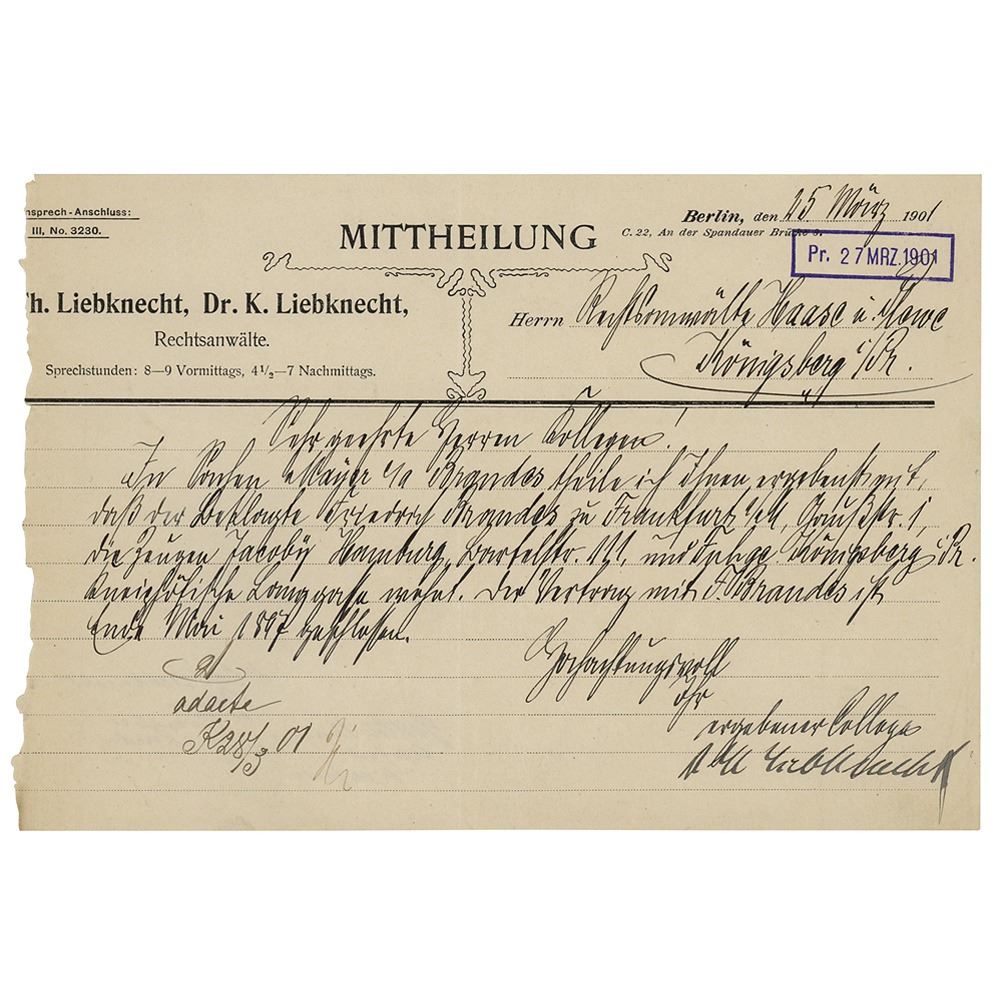 nsprech-Anschluss:
III, No. 3230.
MITTHEILUNG
Berlin, den 25 März 1901
C. 22, An der Spandauer Brücke 9.
Pr. 27 MRZ. 1901
Th. Liebknecht, Dr. K. Liebknecht,
Rechtsanwälte.
Sprechstunden: 8—9 Vormittags, 4½—7 Nachmittags.
Herrn Rechtsanwälte Haase u.
Königsberg i/Pr.
Sehr geehrte Herren Kollegen!
In Sachen Mayer c/a Brandes theile ich Ihnen ergebenst mit,
daß der Beklagte Friedrich Brandes zu Frankfurt a/M, Gaußstr. 1,
die Zeugen Jacoby Hamburg, 111, und Königsberg i Pr.
Kneiphöfische Langgasse wohnt. Der Vertrag mit F. Brandes ist
Ende Mai 1897 geschlossen.
Hochachtungsvoll
Ihr
ergebener College
Dr K Liebknecht
ad acta
K 28/3 01